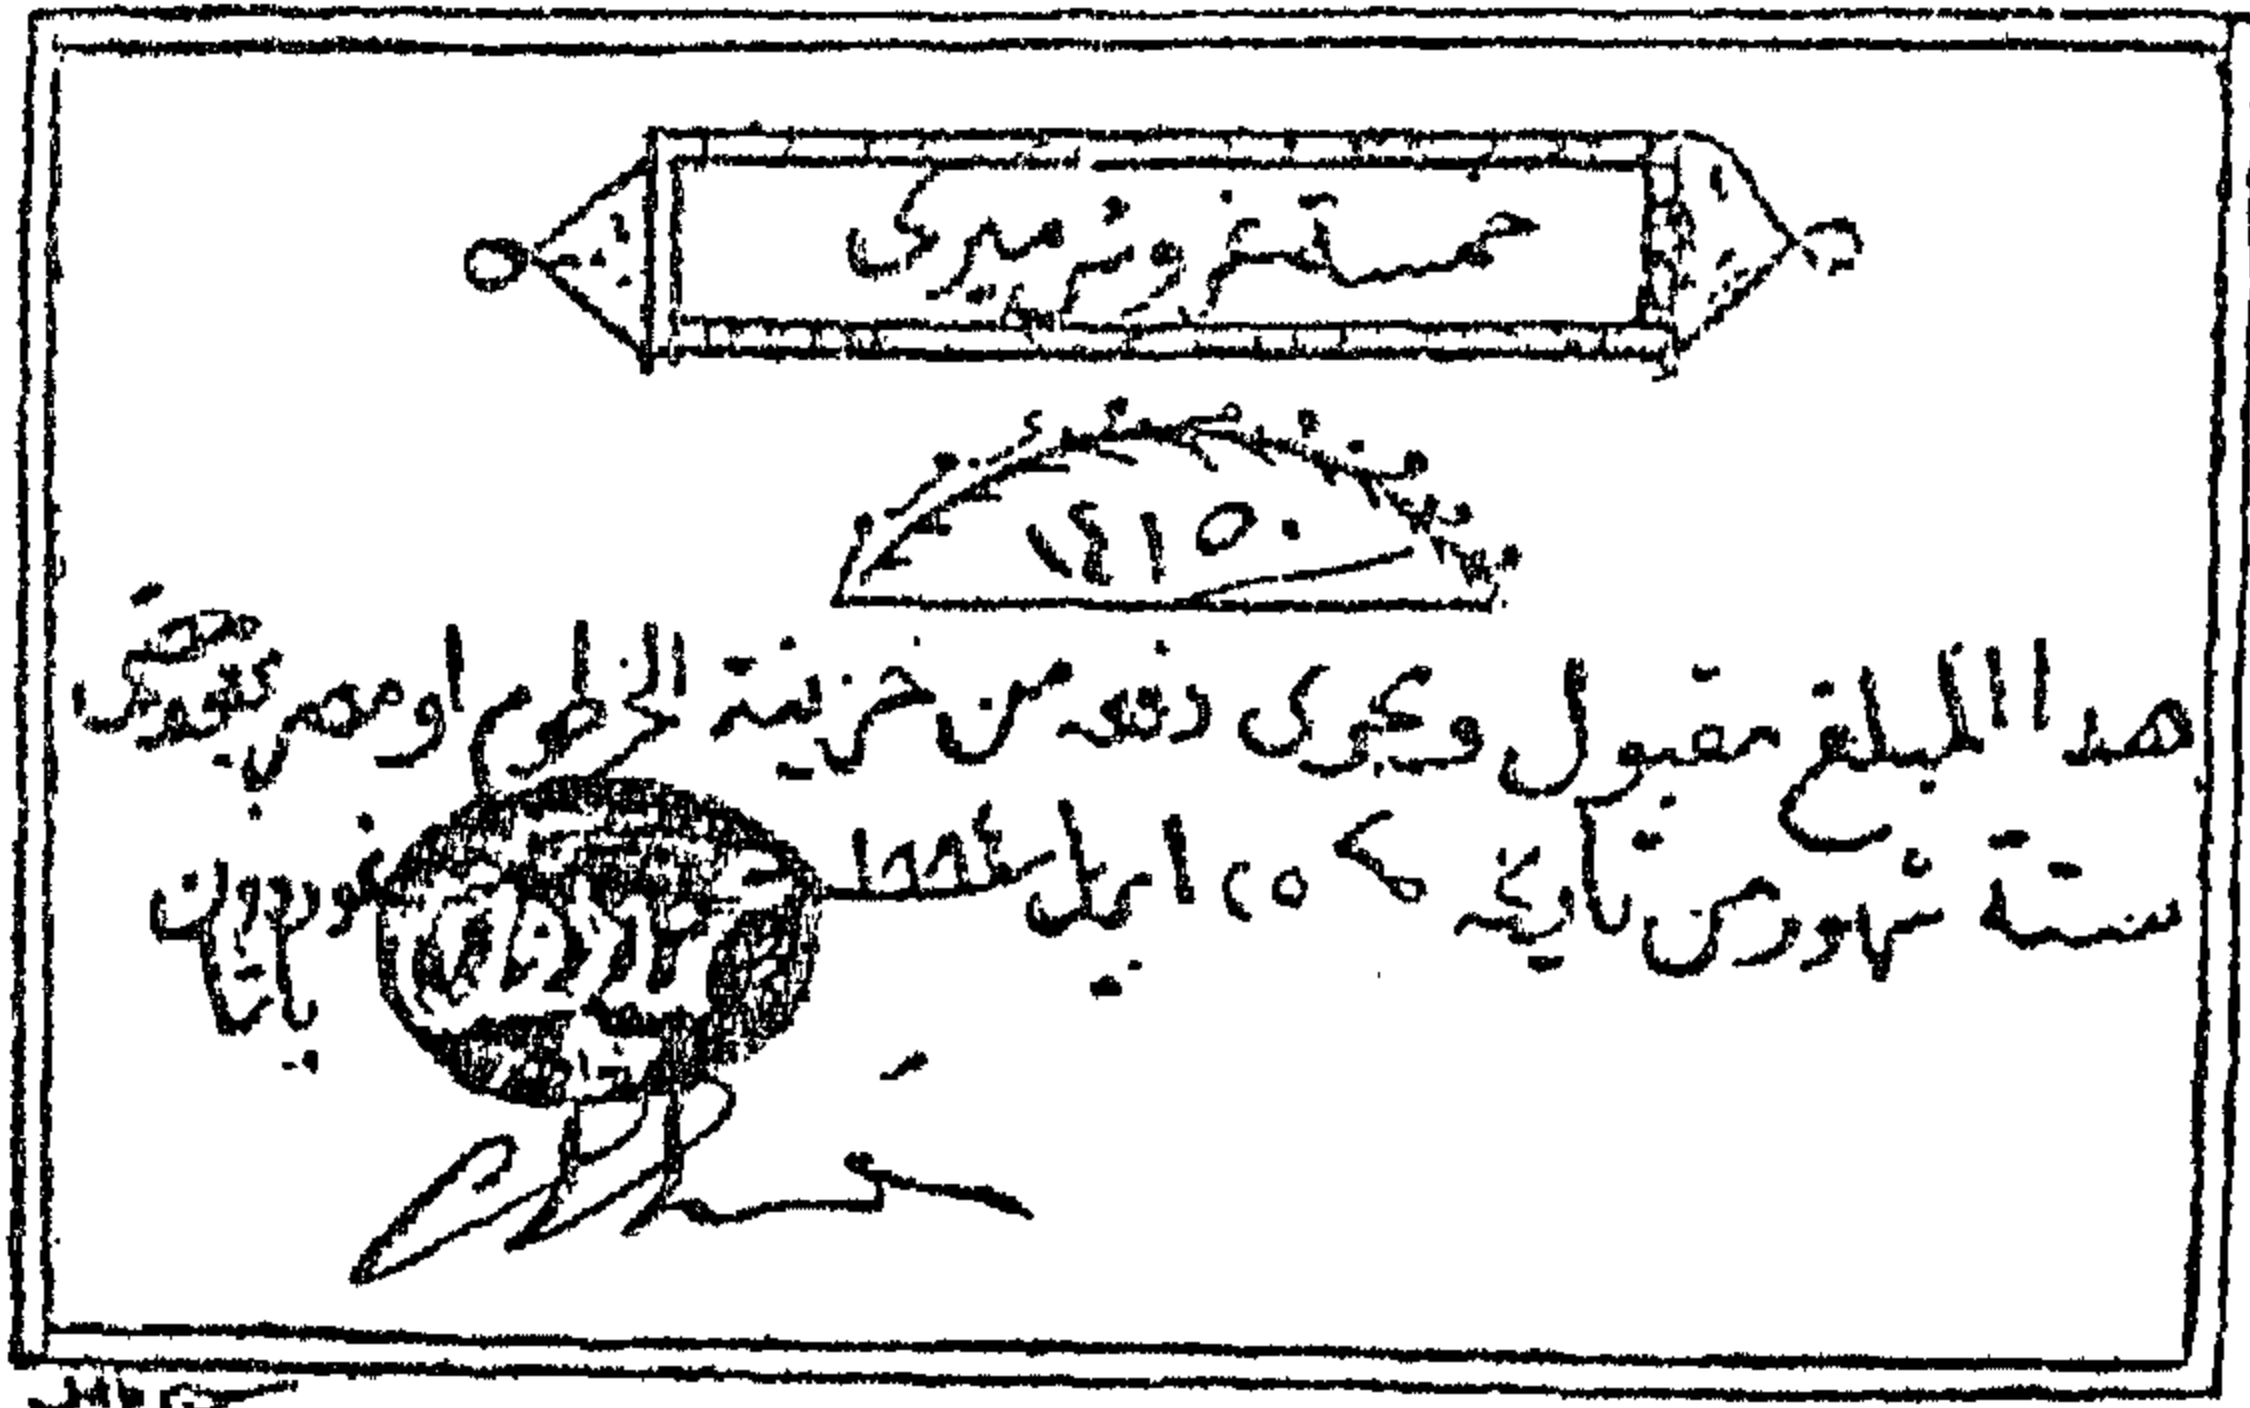 خمسة قروش ميرى
١٤١٥٠
هذا المبلغ مقبول ويجرى دفعه من خزينة الخرطوم او مصر بعد مضى
ستة شهور من تاريخه ٢٥ ابريل ١٨٨٤
غوردون
باشا